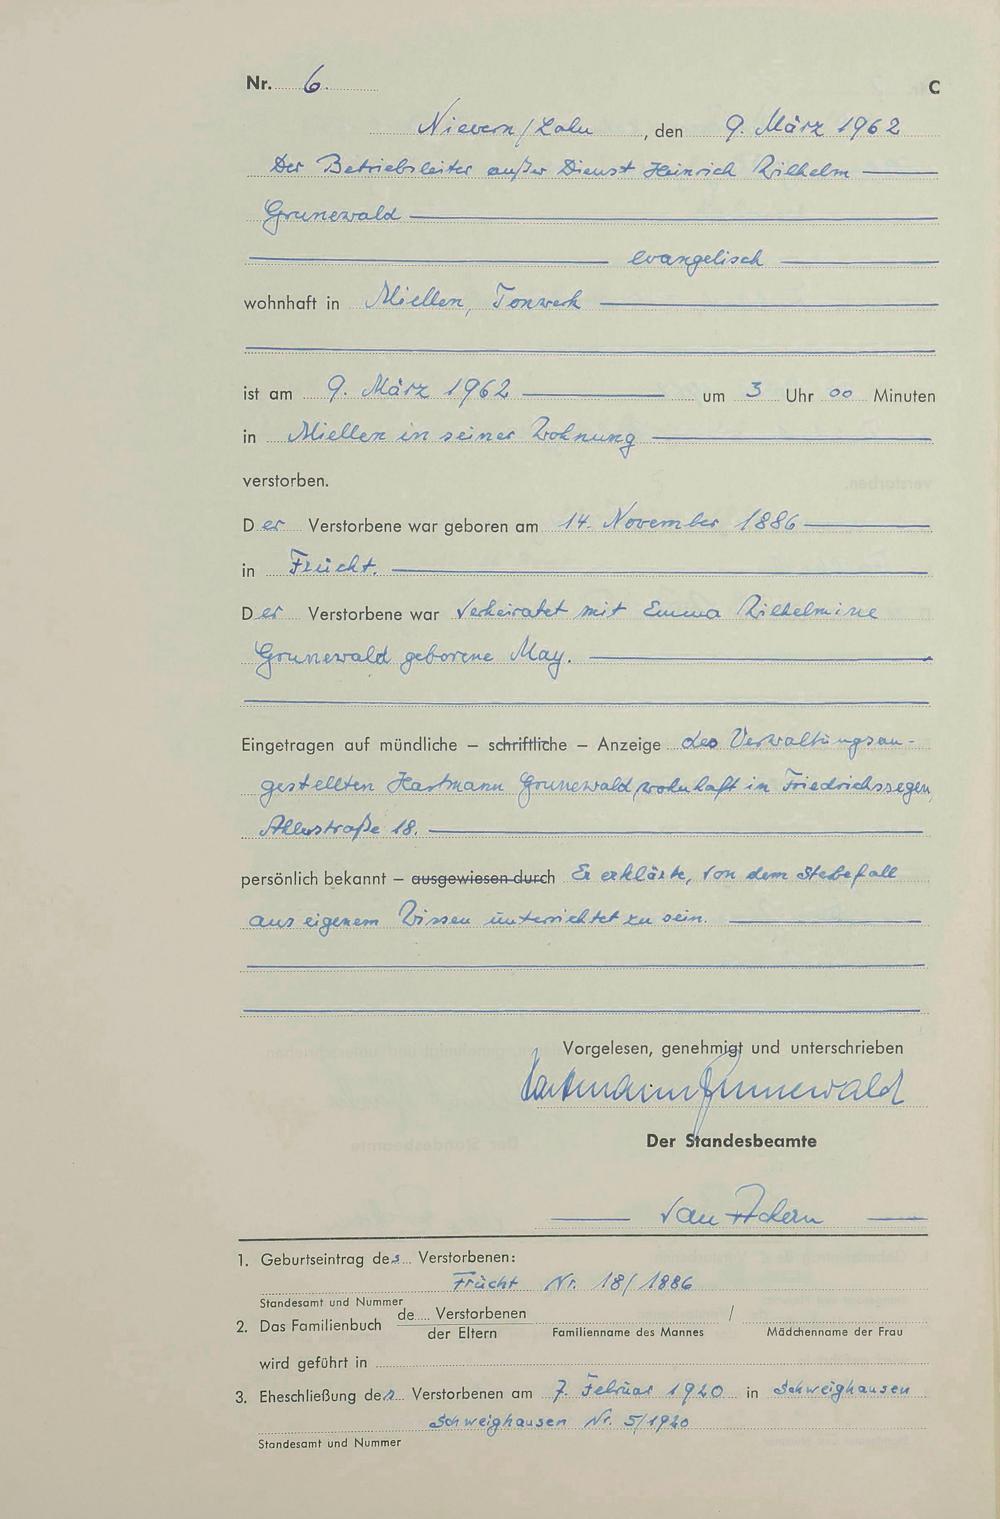 Nr. 6. C
Nievern/Lahn, den 9. März 1962
Der Betriebsleiter außer Dienst Heinrich Wilhelm
Grunewald
evangelisch
wohnhaft in Miellen, Tonwerk
ist am 9. März 1962 um 3 Uhr 00 Minuten
in Miellen in seiner Wohnung
verstorben.
Der Verstorbene war geboren am 14. November 1886
in Frücht.
Der Verstorbene war verheiratet mit Emma Wilhelmine
Grunewald geborene May.
Eingetragen auf mündliche – schriftliche – Anzeige des Verwaltungsan-
gestellten Hartmann Grunewald, wohnhaft in Friedrichssegen,
Ahlerstraße 18.
persönlich bekannt – ausgewiesen durch Er erklärte, von dem Sterbefall
aus eigenem Wissen unterrichtet zu sein.
Vorgelesen, genehmigt und unterschrieben
Hartmann Grunewald
Der Standesbeamte
van
1. Geburtseintrag des Verstorbenen:
Frücht Nr. 18/1886
Standesamt und Nummer
2. Das Familienbuch de.... Verstorbenen /
der Eltern Familienname des Mannes Mädchenname der Frau
wird geführt in
3. Eheschließung des Verstorbenen am 7. Februar 1920 in Schweighausen
Schweighausen Nr. 5/1920
Standesamt und Nummer